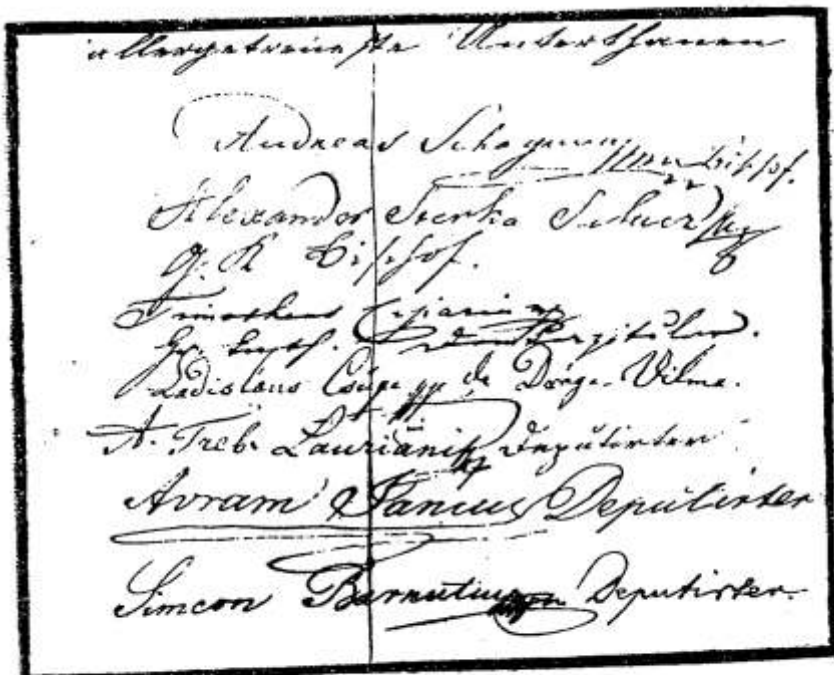 allergetreueste Unterthanen
Andreas Schaguna Bischof.
Alexander Sterka Sulucz
G. K. Bischof.
Timotheus Cipariu
Gr. kath. Domkapitular.
Ladislaus Csüpe de Dorga-Vilma.
A. Treb. Laurianis Deputirter
Avram Iancus Deputirter
Simeon Barnutius Deputirter.